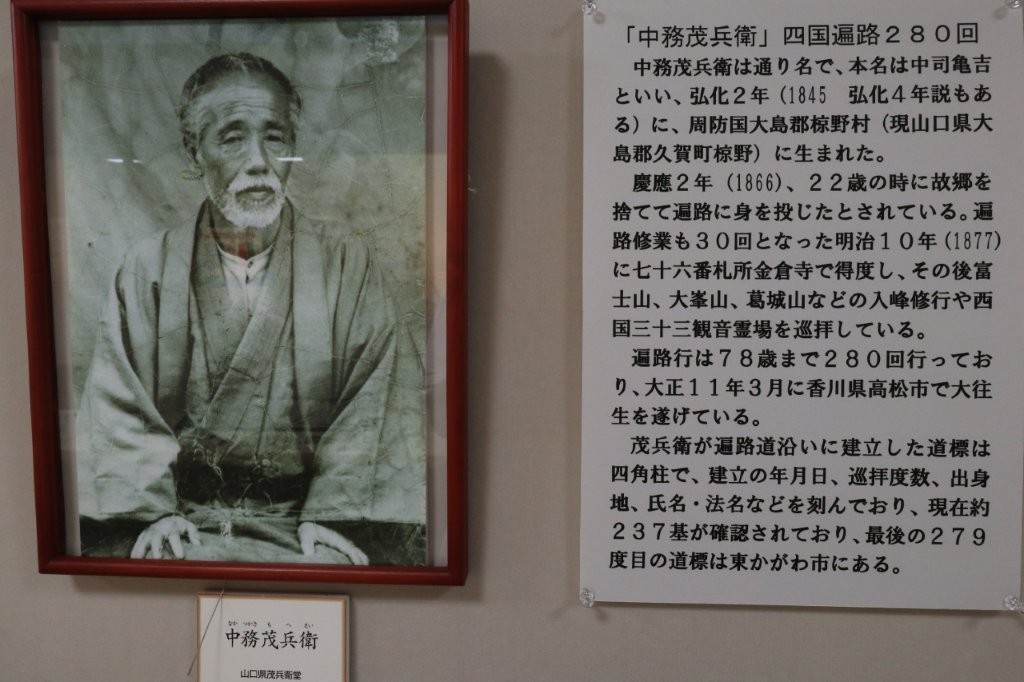 「中務茂兵衛」四国遍路２８０回
中務茂兵衛は通り名で、本名は中司亀吉
といい、弘化２年（1845　弘化４年説もあ
る）に、周防国大島郡椋野村（現山口県大
島郡久賀町椋野）に生まれた。
慶應２年（1866）、２２歳の時に故郷を
捨てて遍路に身を投じたとされている。遍
路修業も３０回となった明治１０年（1877）
に七十六番札所金倉寺で得度し、その後富
士山、大峯山、葛城山などの入峰修行や西
国三十三観音霊場を巡拝している。
遍路行は７８歳まで２８０回行ってお
り、大正１１年３月に香川県高松市で大往
生を遂げている。
茂兵衛が遍路道沿いに建立した道標は
四角柱で、建立の年月日、巡拝度数、出身
地、氏名・法名などを刻んでおり、現在約
２３７基が確認されており、最後の２７９
度目の道標は東かがわ市にある。
なか つかさ も へ え い
中務茂兵衛
山口県茂兵衛堂